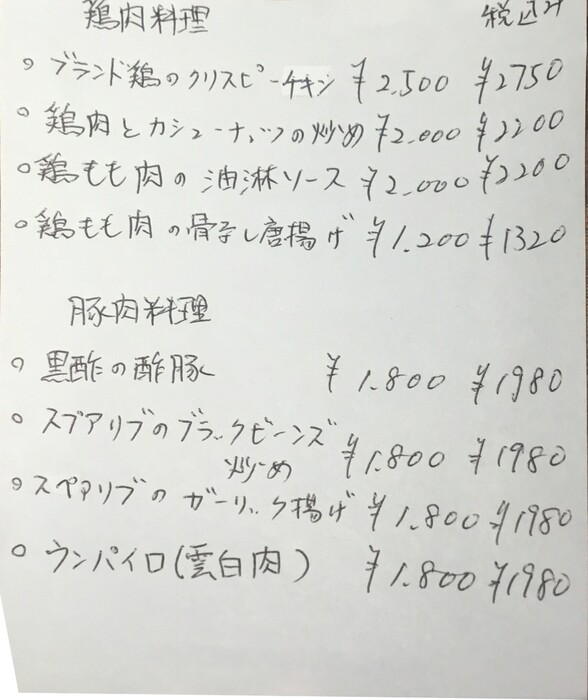 鶏肉料理 税込み
○ ブランド鶏のクリスピーチキン ¥2,500 ¥2750
○ 鶏肉とカシューナッツの炒め ¥2,000 ¥2200
○ 鶏もも肉の油淋ソース ¥2,000 ¥2200
○ 鶏もも肉の骨なし唐揚げ ¥1,200 ¥1320
豚肉料理
○ 黒酢の酢豚 ¥1,800 ¥1980
○ スブアリブのブラックビーンズ
炒め ¥1,800 ¥1980
○ スペアリブのガーリック揚げ ¥1,800 ¥1980
○ ウンパイロ(雲白肉) ¥1,800 ¥1980